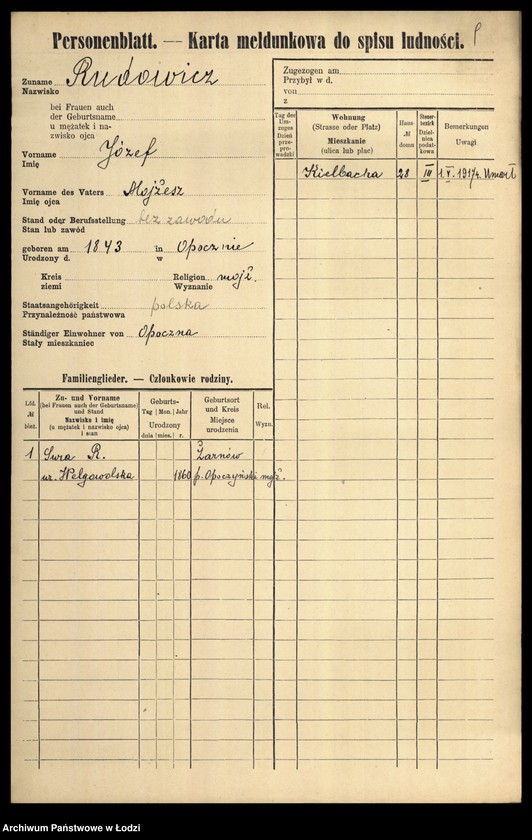 Personenblatt. — Karta meldunkowa do spisu ludności.
Zuname Rudowicz
Nazwisko
bei Frauen auch
der Geburtsname
u mężatek i na-
zwisko ojca
Vorname Józef
Imię
Vorname des Vaters Mojżesz
Imię ojca
Stand oder Berufsstellung bez zawodu
Stan lub zawód
geboren am 1843 in Opocznie
Urodzony d. w
Kreis Religion mojż.
ziemi Wyznanie
Staatsangehörigkeit polska
Przynależność państwowa
Ständiger Einwohner von Opoczna
Stały mieszkaniec
Familienglieder. — Członkowie rodziny.
Lfd. № bież.
Zu- und Vorname
(bei Frauen auch der Geburtsname)
und Stand
Nazwisko i imię
(u mężatek i nazwisko ojca)
i stan
Geburts-
Tag Mon. Jahr
Urodzony
dnia mies. r.
Geburtsort
und Kreis
Miejsce
urodzenia
Rel.
Wyzn.
1 Sura R. Żarnów
ur. Welgowolska 1860 p. Opoczyński mojż.
Zugezogen am
Przybył w d.
von
z
Tag der
Um-
zuges
Dzień
prze-
prowadzki
Wohnung
(Strasse oder Platz)
Mieszkanie
(ulica lub plac)
Haus-
№
domu
Steuer-
bezirk
Dziel-
nica
podat-
kowa
Bemerkungen
Uwagi
Kielbacha 28 III 1.V.1917r. Umarł
Archiwum Państwowe w Łodzi